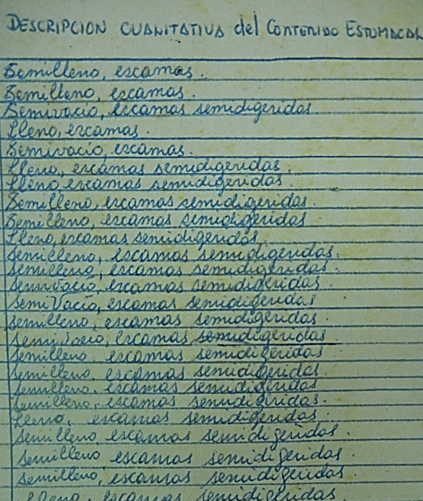 DESCRIPCION CUANITATIVA del CONTENIDO ESTOMACAL
Semilleno, escamas.
Semilleno, escamas.
Semivacío, escamas semidigeridas
Lleno, escamas.
Semivacío, escamas.
Lleno, escamas semidigeridas.
Lleno, escamas semidigeridas.
Semilleno, escamas semidigeridas.
Semilleno, escamas semidigeridas
Lleno, escamas semidigeridas.
Semilleno, escamas semidigeridas.
Semilleno, escamas semidigeridas.
Semivacío, escamas semidigeridas.
Semi Vacío, escamas semidigeridas
Semilleno, escamas semidigeridas.
Semivacio, escamas semidigeridas
Semilleno, escamas semidigeridas
Semilleno, escamas semidigeridas
Semilleno, escamas semidigeridas
Semilleno, escamas semidigeridas.
Lleno, escamas semidigeridas.
Semilleno, escamas semidigeridas.
Semilleno escamas semidigeridas.
Semilleno, escamas semidigeridas
Lleno, escamas semidigeridas